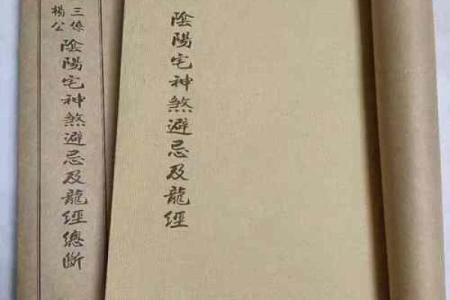 三僚
楊公
陰陽宅神煞避忌及龍經總斷
陰陽宅神煞避忌及龍經